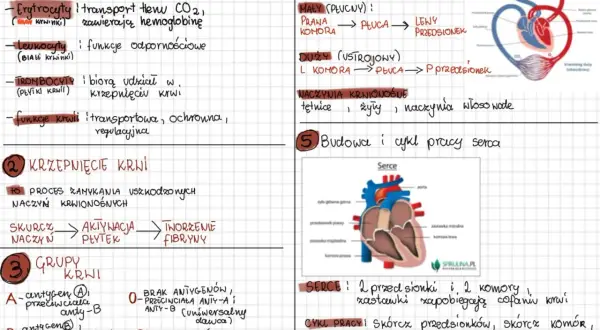 - Erytrocyty : transport tlenu CO2,
zawierają hemoglobinę
- Leukocyty : funkcje odpornościowe
(BIAŁE krwinki)
- TROMBOCYTY : biorą udział w
(PŁYTKI KRWI) krzepnięciu krwi
- funkcje krwi : transportowa, ochronna,
regulacyjna
2 KRZEPNIĘCIE KRWI
to PROCES ZAMYKANIA USZKODZONYCH
NACZYŃ KRWIONOŚNYCH
SKURCZ → AKTYWACJA → TWORZENIE
NACZYŃ PŁYTEK FIBRYNY
3 GRUPY
KRWI
A - antygen A,
przeciwciała
anty-B
O - BRAK ANTYGENÓW,
PRZECIWCIAŁA ANTY-A i
ANTY-B (uniwersalny
dawca)
antygen B
MAŁY (PŁUCNY) :
PRAWA → PŁUCA → LEWY
KOMORA PRZEDSIONEK
DUŻY (USTROJOWY)
L KOMORA → PŁUCA → P PRZEDSIONEK
NACZYNIA KRWIONOŚNE
tętnice , żyły , naczynia włosowate
5 Budowa i cykl pracy serca
Serce
żyła główna górna
aorta
przedsionek prawy
komora lewa
komora prawa
SPIRULINA.PL
SERCE : 2 przedsionki i 2 komory
zastawki zapobiegają cofaniu krwi
CYKL PRACY : Skórcz przedsionków, skórcz komór,